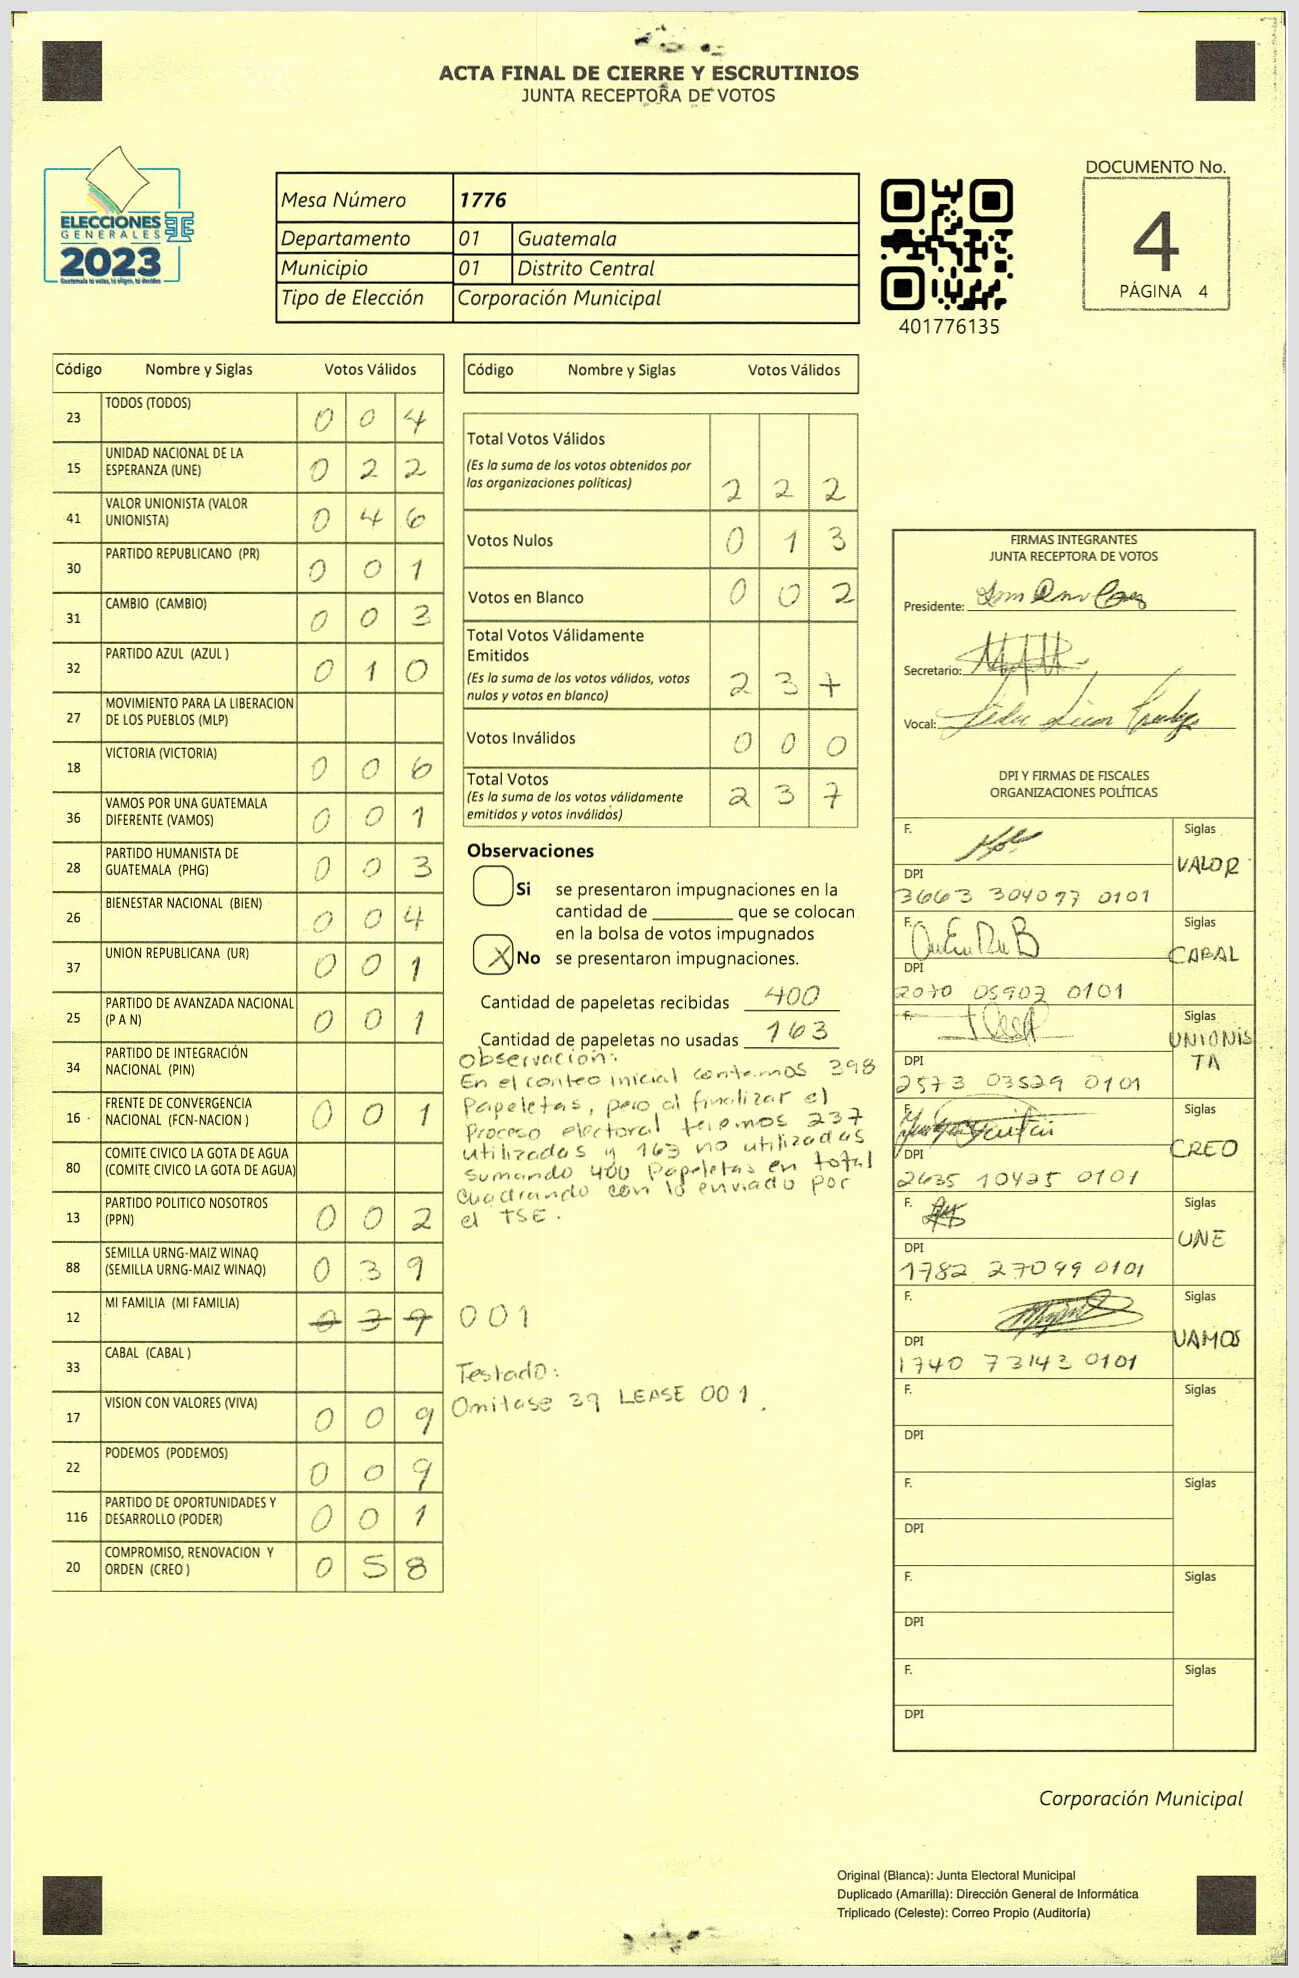 ACTA FINAL DE CIERRE Y ESCRUTINIOS
JUNTA RECEPTORA DE VOTOS
ELECCIONES
GENERALES
2023
Guatemala tú votas, tú eliges, tú decides
Mesa Número 1776
Departamento 01 Guatemala
Municipio 01 Distrito Central
Tipo de Elección Corporación Municipal
401776135
DOCUMENTO No.
4
PÁGINA 4
Código Nombre y Siglas Votos Válidos
23 TODOS (TODOS) 0 0 4
15 UNIDAD NACIONAL DE LA
ESPERANZA (UNE) 0 2 2
41 VALOR UNIONISTA (VALOR
UNIONISTA) 0 4 6
30 PARTIDO REPUBLICANO (PR) 0 0 1
31 CAMBIO (CAMBIO) 0 0 3
32 PARTIDO AZUL (AZUL ) 0 1 0
27 MOVIMIENTO PARA LA LIBERACION
DE LOS PUEBLOS (MLP)
18 VICTORIA (VICTORIA) 0 0 6
36 VAMOS POR UNA GUATEMALA
DIFERENTE (VAMOS) 0 0 1
28 PARTIDO HUMANISTA DE
GUATEMALA (PHG) 0 0 3
26 BIENESTAR NACIONAL (BIEN) 0 0 4
37 UNION REPUBLICANA (UR) 0 0 1
25 PARTIDO DE AVANZADA NACIONAL
(P A N) 0 0 1
34 PARTIDO DE INTEGRACIÓN
NACIONAL (PIN)
16 FRENTE DE CONVERGENCIA
NACIONAL (FCN-NACION ) 0 0 1
80 COMITE CIVICO LA GOTA DE AGUA
(COMITE CIVICO LA GOTA DE AGUA)
13 PARTIDO POLITICO NOSOTROS
(PPN) 0 0 2
88 SEMILLA URNG-MAIZ WINAQ
(SEMILLA URNG-MAIZ WINAQ) 0 3 9
12 MI FAMILIA (MI FAMILIA) 0 3 9 001
33 CABAL (CABAL )
17 VISION CON VALORES (VIVA) 0 0 9
22 PODEMOS (PODEMOS) 0 0 9
116 PARTIDO DE OPORTUNIDADES Y
DESARROLLO (PODER) 0 0 1
20 COMPROMISO, RENOVACION Y
ORDEN (CREO ) 0 5 8
Código Nombre y Siglas Votos Válidos
Total Votos Válidos
(Es la suma de los votos obtenidos por
las organizaciones políticas) 2 2 2
Votos Nulos 0 1 3
Votos en Blanco 0 0 2
Total Votos Válidamente
Emitidos
(Es la suma de los votos válidos, votos
nulos y votos en blanco) 2 3 7
Votos Inválidos 0 0 0
Total Votos
(Es la suma de los votos válidamente
emitidos y votos inválidos) 2 3 7
Observaciones
Si se presentaron impugnaciones en la
cantidad de ________ que se colocan
en la bolsa de votos impugnados
X No se presentaron impugnaciones.
Cantidad de papeletas recibidas 400
Cantidad de papeletas no usadas 163
Observación:
En el conteo inicial contamos 398
Papeletas, pero al finalizar el
Proceso electoral tenemos 237
utilizadas y 163 no utilizadas
sumando 400 Papeletas en total
cuadrando con lo enviado por
el TSE.
Testado:
Omitase 39 LEASE 001.
FIRMAS INTEGRANTES
JUNTA RECEPTORA DE VOTOS
Presidente:
Secretario:
Vocal:
DPI Y FIRMAS DE FISCALES
ORGANIZACIONES POLÍTICAS
F. Siglas
VALOR
DPI
3663 304097 0101
F. Siglas
CABAL
DPI
2070 05907 0101
F. Siglas
UNIONIS
TA
DPI
2573 03529 0101
F. Siglas
CREO
DPI
2635 10425 0101
F. Siglas
UNE
DPI
1782 27099 0101
F. Siglas
VAMOS
DPI
1740 73143 0101
F. Siglas
DPI
F. Siglas
DPI
F. Siglas
DPI
F. Siglas
DPI
Corporación Municipal
Original (Blanca): Junta Electoral Municipal
Duplicado (Amarilla): Dirección General de Informática
Triplicado (Celeste): Correo Propio (Auditoría)